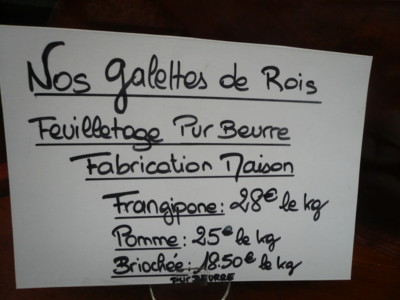 Nos galettes de Rois
Feuilletage Pur Beurre
Fabrication Maison
Frangipane: 28€ le kg
Pomme: 25€ le kg
Briochée: 18.50€ le kg
PUR BEURRE